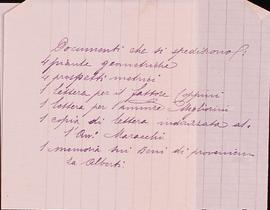 Documenti che si spediscono:
4 piante geometriche
4 prospetti metrici
1 lettera per il fattore Coppini
1 lettera per l'amico Migliorini
1 copia di lettera indirizzata al
l'Avv. Maracchi
1 memoria sui Beni di provenien
za Alberti